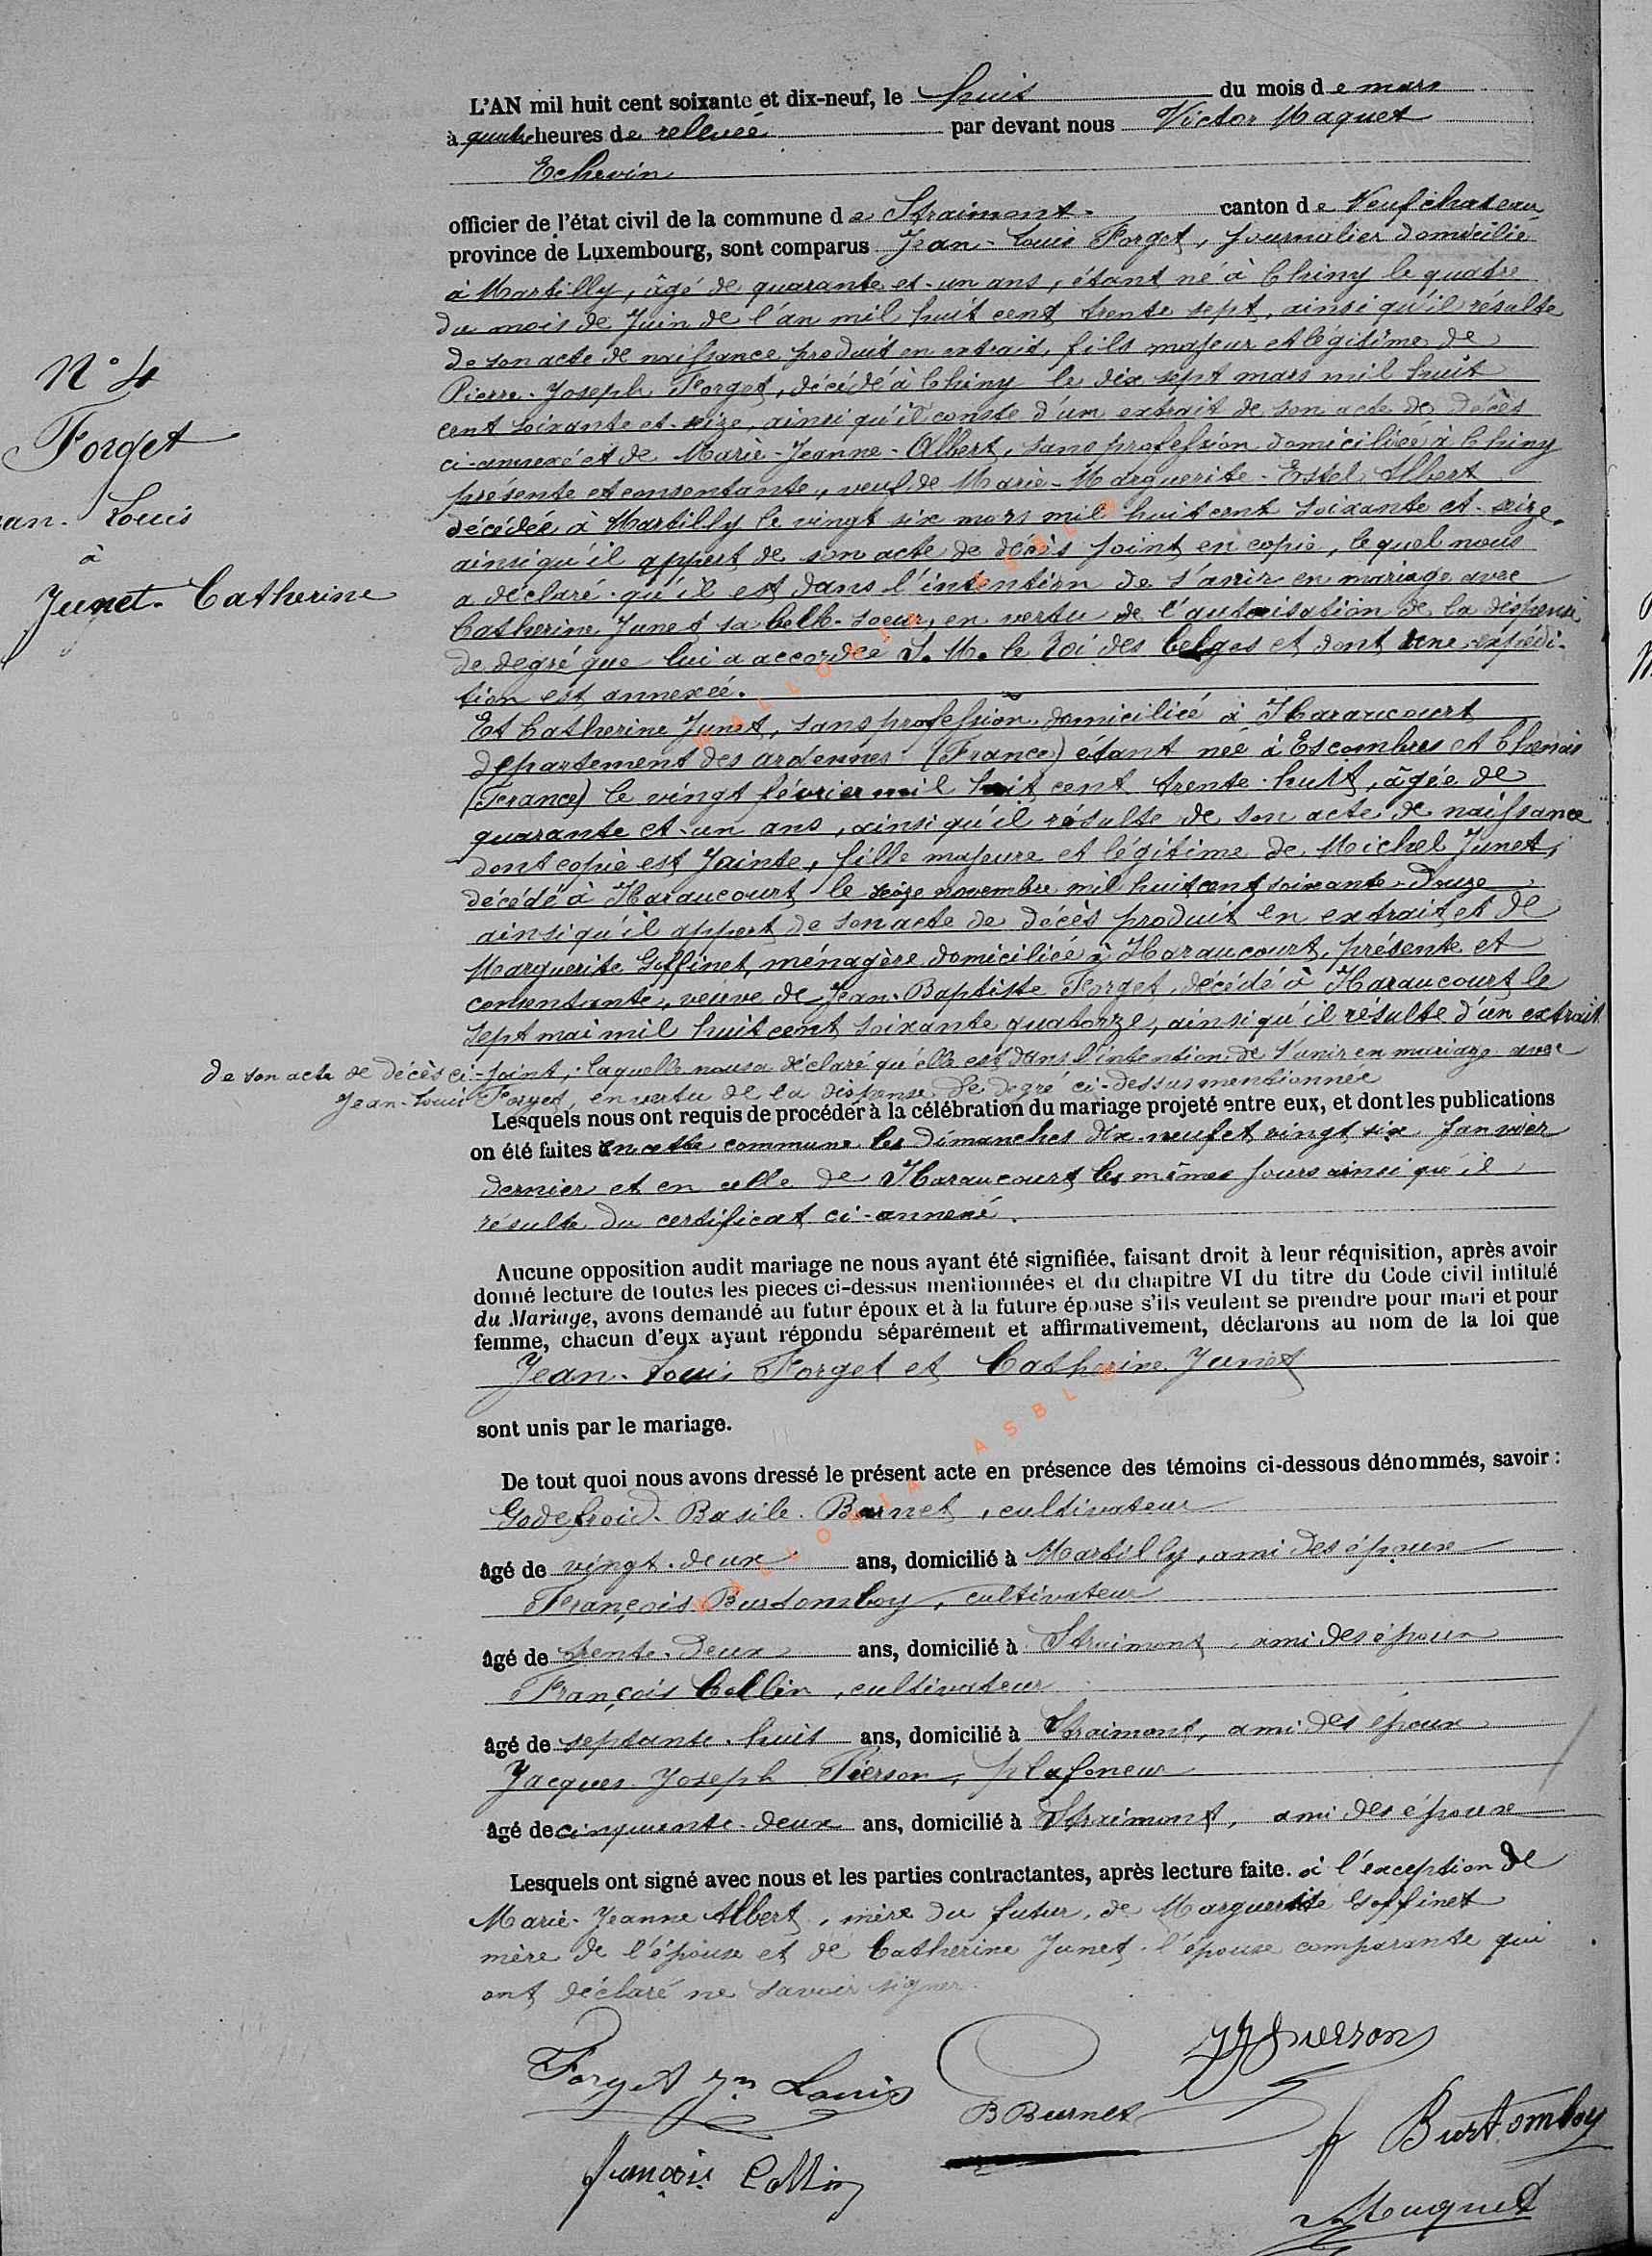 L'AN mil huit cent soixante et dix-neuf, le huit du mois de mars
à quatre heures de relevée par devant nous Victor Maquet
Echevin
officier de l'état civil de la commune de Straimont canton de Neufchateau
province de Luxembourg, sont comparus Jean-Louis Forget, journalier domicilié
à Martilly, âgé de quarante et-un ans, étant né à Chiny le quatre
du mois de Juin de l'an mil huit cent trente sept, ainsi qu'il résulte
de son acte de naissance produit en extrait, fils majeur et légitime de
Pierre-Joseph Forget, décédé à Chiny le dix sept mars mil huit
cent soixante et-seize, ainsi qu'il conste d'un extrait de son acte de décès
ci-annexé et de Marie-Jeanne-Albert, sans profession domiciliée à Chiny
présente et consentante, veuf de Marie-Marguerite-Estel Albert
décédée à Martilly le vingt six mars mil huit cent soixante et-seize,
ainsi qu'il appert de son acte de décès joint en copie, lequel nous
a déclaré qu'il est dans l'intention de s'unir en mariage avec
Catherine Junet sa belle-soeur, en vertu de l'autorisation de la dispense
de degré que lui a accordée S. M. le Roi des belges et dont une expédi-
tion est annexée.
Et Catherine Junet, sans profession domiciliée à Haraucourt
département des ardennes (France) étant née à Escombres et Chenois
(France) le vingt février mil huit cent trente-huit, âgée de
quarante et-un ans, ainsi qu'il résulte de son acte de naissance
dont copie est Jointe, fille majeure et légitime de Michel Junet,
décédé à Haraucourt le seize novembre mil huit cent soixante-douze
ainsi qu'il appert de son acte de décès produit en extrait et de
Marguerite Goffinet, ménagère domiciliée à Haraucourt, présente et
consentante, veuve de Jean-Baptiste Forget, décédé à Haraucourt le
sept mai mil huit cent soixante quatorze, ainsi qu'il résulte d'un extrait
de son acte de décès ci-joint, laquelle nous a déclaré qu'elle est dans l'intention de s'unir en mariage avec
Jean-Louis Forget, en vertu de la dispense de degré ci-dessus mentionnée
N° 4
Forget
an-Louis
à
Junet-Catherine
Lesquels nous ont requis de procéder à la célébration du mariage projeté entre eux, et dont les publications
on été faites en cette commune les dimanches dix-neuf et vingt six Janvier
dernier et en celle de Haraucourt les mêmes jours ainsi qu'il
résulte du certificat ci-annexé.
Aucune opposition audit mariage ne nous ayant été signifiée, faisant droit à leur réquisition, après avoir
donné lecture de toutes les pieces ci-dessus mentionnées et du chapitre VI du titre du Code civil intitulé
du Mariage, avons demandé au futur époux et à la future épouse s'ils veulent se prendre pour mari et pour
femme, chacun d'eux ayant répondu séparément et affirmativement, déclarons au nom de la loi que
Jean-Louis Forget et Catherine Junet
sont unis par le mariage.
De tout quoi nous avons dressé le présent acte en présence des témoins ci-dessous dénommés, savoir :
Godefroid-Basile-Burnet, cultivateur
âgé de vingt-deux ans, domicilié à Martilly, ami des époux
François Burtomboy, cultivateur
âgé de trente-deux ans, domicilié à Straimont, ami des époux
François Collin, cultivateur
âgé de septante-huit ans, domicilié à Straimont, ami des époux
Jacques-Joseph Pierson, plafoneur
âgé de cinquante-deux ans, domicilié à Straimont, ami des époux
Lesquels ont signé avec nous et les parties contractantes, après lecture faite. à l'exception de
Marie-Jeanne Albert, mère du futur, de Marguerite Goffinet
mère de l'épouse et de Catherine Junet l'épouse comparante qui
ont déclaré ne savoir signer
Forget Jn Louis
JJ Pierson
B Burnet
f Burtomboy
françois Collin
Maquet
WALLONIA ASBL ©
WALLONIA ASBL ©